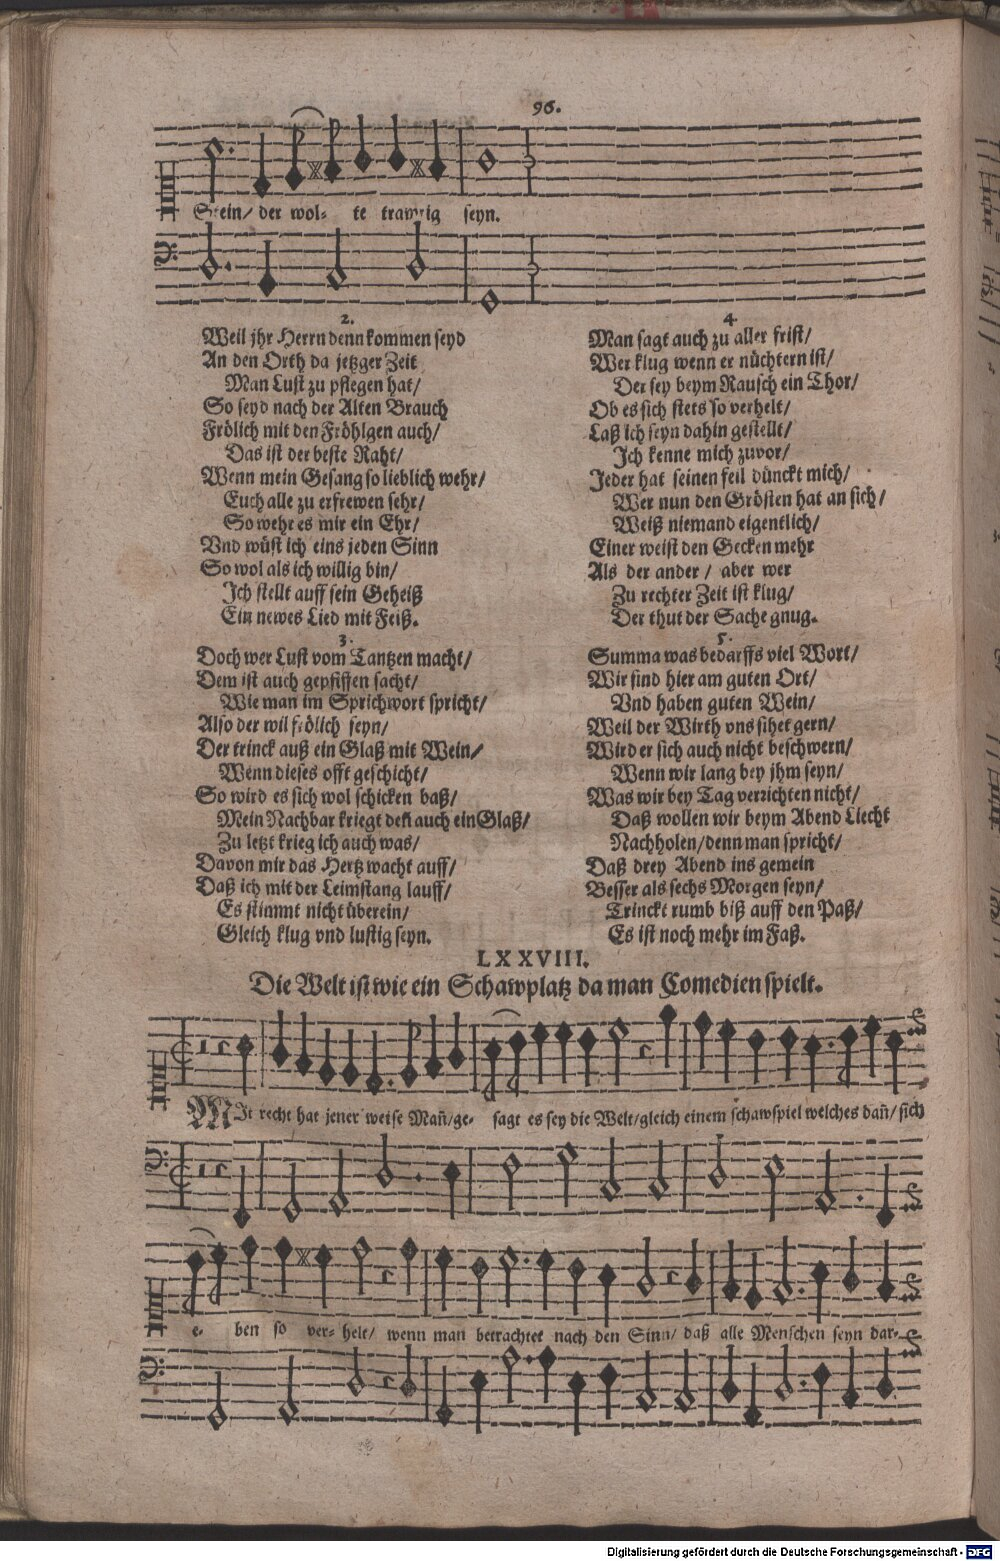 96.
Stein/ der wol- te trawrig seyn.
2.
Weil jhr Herrn denn kommen seyd
An den Orth da jetzger Zeit
Man Lust zu pflegen hat/
So seyd nach der Alten Brauch
Frölich mit den Fröhlgen auch/
Das ist der beste Raht/
Wenn mein Gesang so lieblich wehr/
Euch alle zu erfrewen sehr/
So wehr es mir ein Ehr/
Vnd wüst ich eins jeden Sinn
So wol als ich willig bin/
Ich stellt auff sein Geheiß
Ein newes Lied mit Feiß.
3.
Doch wer Lust vom Tantzen macht/
Dem ist auch gepfiffen sacht/
Wie man im Sprichwort spricht/
Also der wil frölich seyn/
Der trinck auß ein Glaß mit Wein/
Wenn dieses offt geschicht/
So wird es sich wol schicken baß/
Mein Nachbar kriegt deñ auch ein Glaß/
Zu letzt krieg ich auch was/
Davon mir das Hertz wacht auff/
Daß ich mit der Leimstang lauff/
Es stimmt nicht überein/
Gleich klug vnd lustig seyn.
4.
Man sagt auch zu aller frist/
Wer klug wenn er nüchtern ist/
Der sey beym Rausch ein Thor/
Ob es sich stets so verhelt/
Laß ich seyn dahin gestellt/
Ich kenne mich zuvor/
Jeder hat seinen feil dünckt mich/
Wer nun den Grösten hat an sich/
Weiß niemand eigentlich/
Einer weist den Gecken mehr
Als der ander/ aber wer
Zu rechter Zeit ist klug/
Der thut der Sache gnug.
5.
Summa was bedarffs viel Wort/
Wir sind hier am guten Ort/
Vnd haben guten Wein/
Weil der Wirth vns sihet gern/
Wird er sich auch nicht beschwern/
Wenn wir lang bey jhm seyn/
Was wir bey Tag verrichten nicht/
Daß wollen wir beym Abend Liecht
Nachholen/ denn man spricht/
Daß drey Abend ins gemein
Besser als sechs Morgen seyn/
Trinckt rumb biß auff den Paß/
Es ist noch mehr im Faß.
LXXVIII.
Die Welt ist wie ein Schawplatz da man Comedien spielt.
MIt recht hat jener weise Mañ/ ge- sagt es sey die Welt/ gleich einem schawspiel welches dañ/ sich
e- ben so ver- helt/ wenn man betrachtet nach den Sinn/ daß alle Menschen seyn dar-
Digitalisierung gefördert durch die Deutsche Forschungsgemeinschaft - DFG